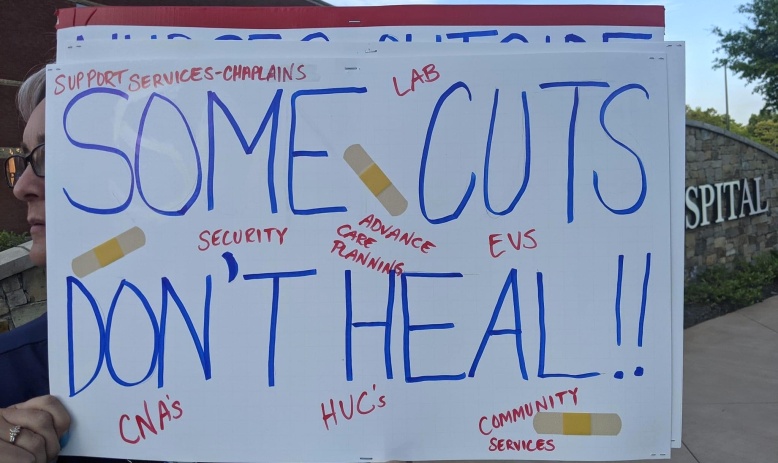 NURSES OUTSIDE
SUPPORT SERVICES-CHAPLAINS
LAB
SOME CUTS
SECURITY
ADVANCE
CARE
PLANNING
EVS
DON'T HEAL!!
CNA's
HUC's
COMMUNITY
SERVICES
SPITAL